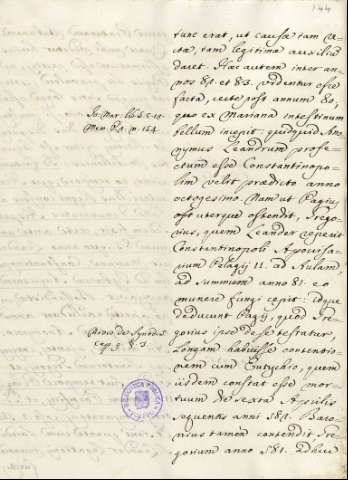 144
tunc erat, ut causæ tam iu-
stæ, tam legitimæ auxilium
daret. Hæc autem inter an-
nos 81. et 83. videntur esse
facta, certe post annum 80,
quo ex Mariana intestinum
bellum incepit, quidquid Ano-
nymus Leandrum profe-
ctum esse Constantinopo-
lim velit prædicto anno
octogesimo. Nam ut Pagius
uterque ostendit, Grego-
rius, quem Leander reperit
Constantinopoli Apocrisa-
rium Pelagij II. ad Aulam,
ad summum anno 81. eo
munere fungi cepit: idque
deducunt Pagij, quod Gre-
gorius ipse de se testatur,
longam habuisse contentio-
nem cum Eutychio, quem
iisdem constat esse mor-
tuum die sexta Aprilis
sequentis anni 582. Baro-
nius tamen contendit Gre-
gorium anno 581. adhuc
Jo. Mar. lib. 5. c. 12.
n. 124.
de Synodis
cap. 9. § 3.
BIBLIOTECA